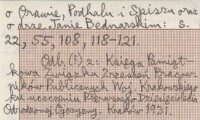 o Orawie, Podhalu i Spiszu oraz
o drze Janie Bednarskim: s.
22, 55, 108, 118-121.
Odb. (?) z: Księga Pamiąt-
kowa Związku Zrzeszeń Pracow-
ników Publicznych Woj. Krakowskiego
ku uczczeniu Pierwszego Dziesięciolecia
Odrodzonej Ojczyzny, Kraków 1931.